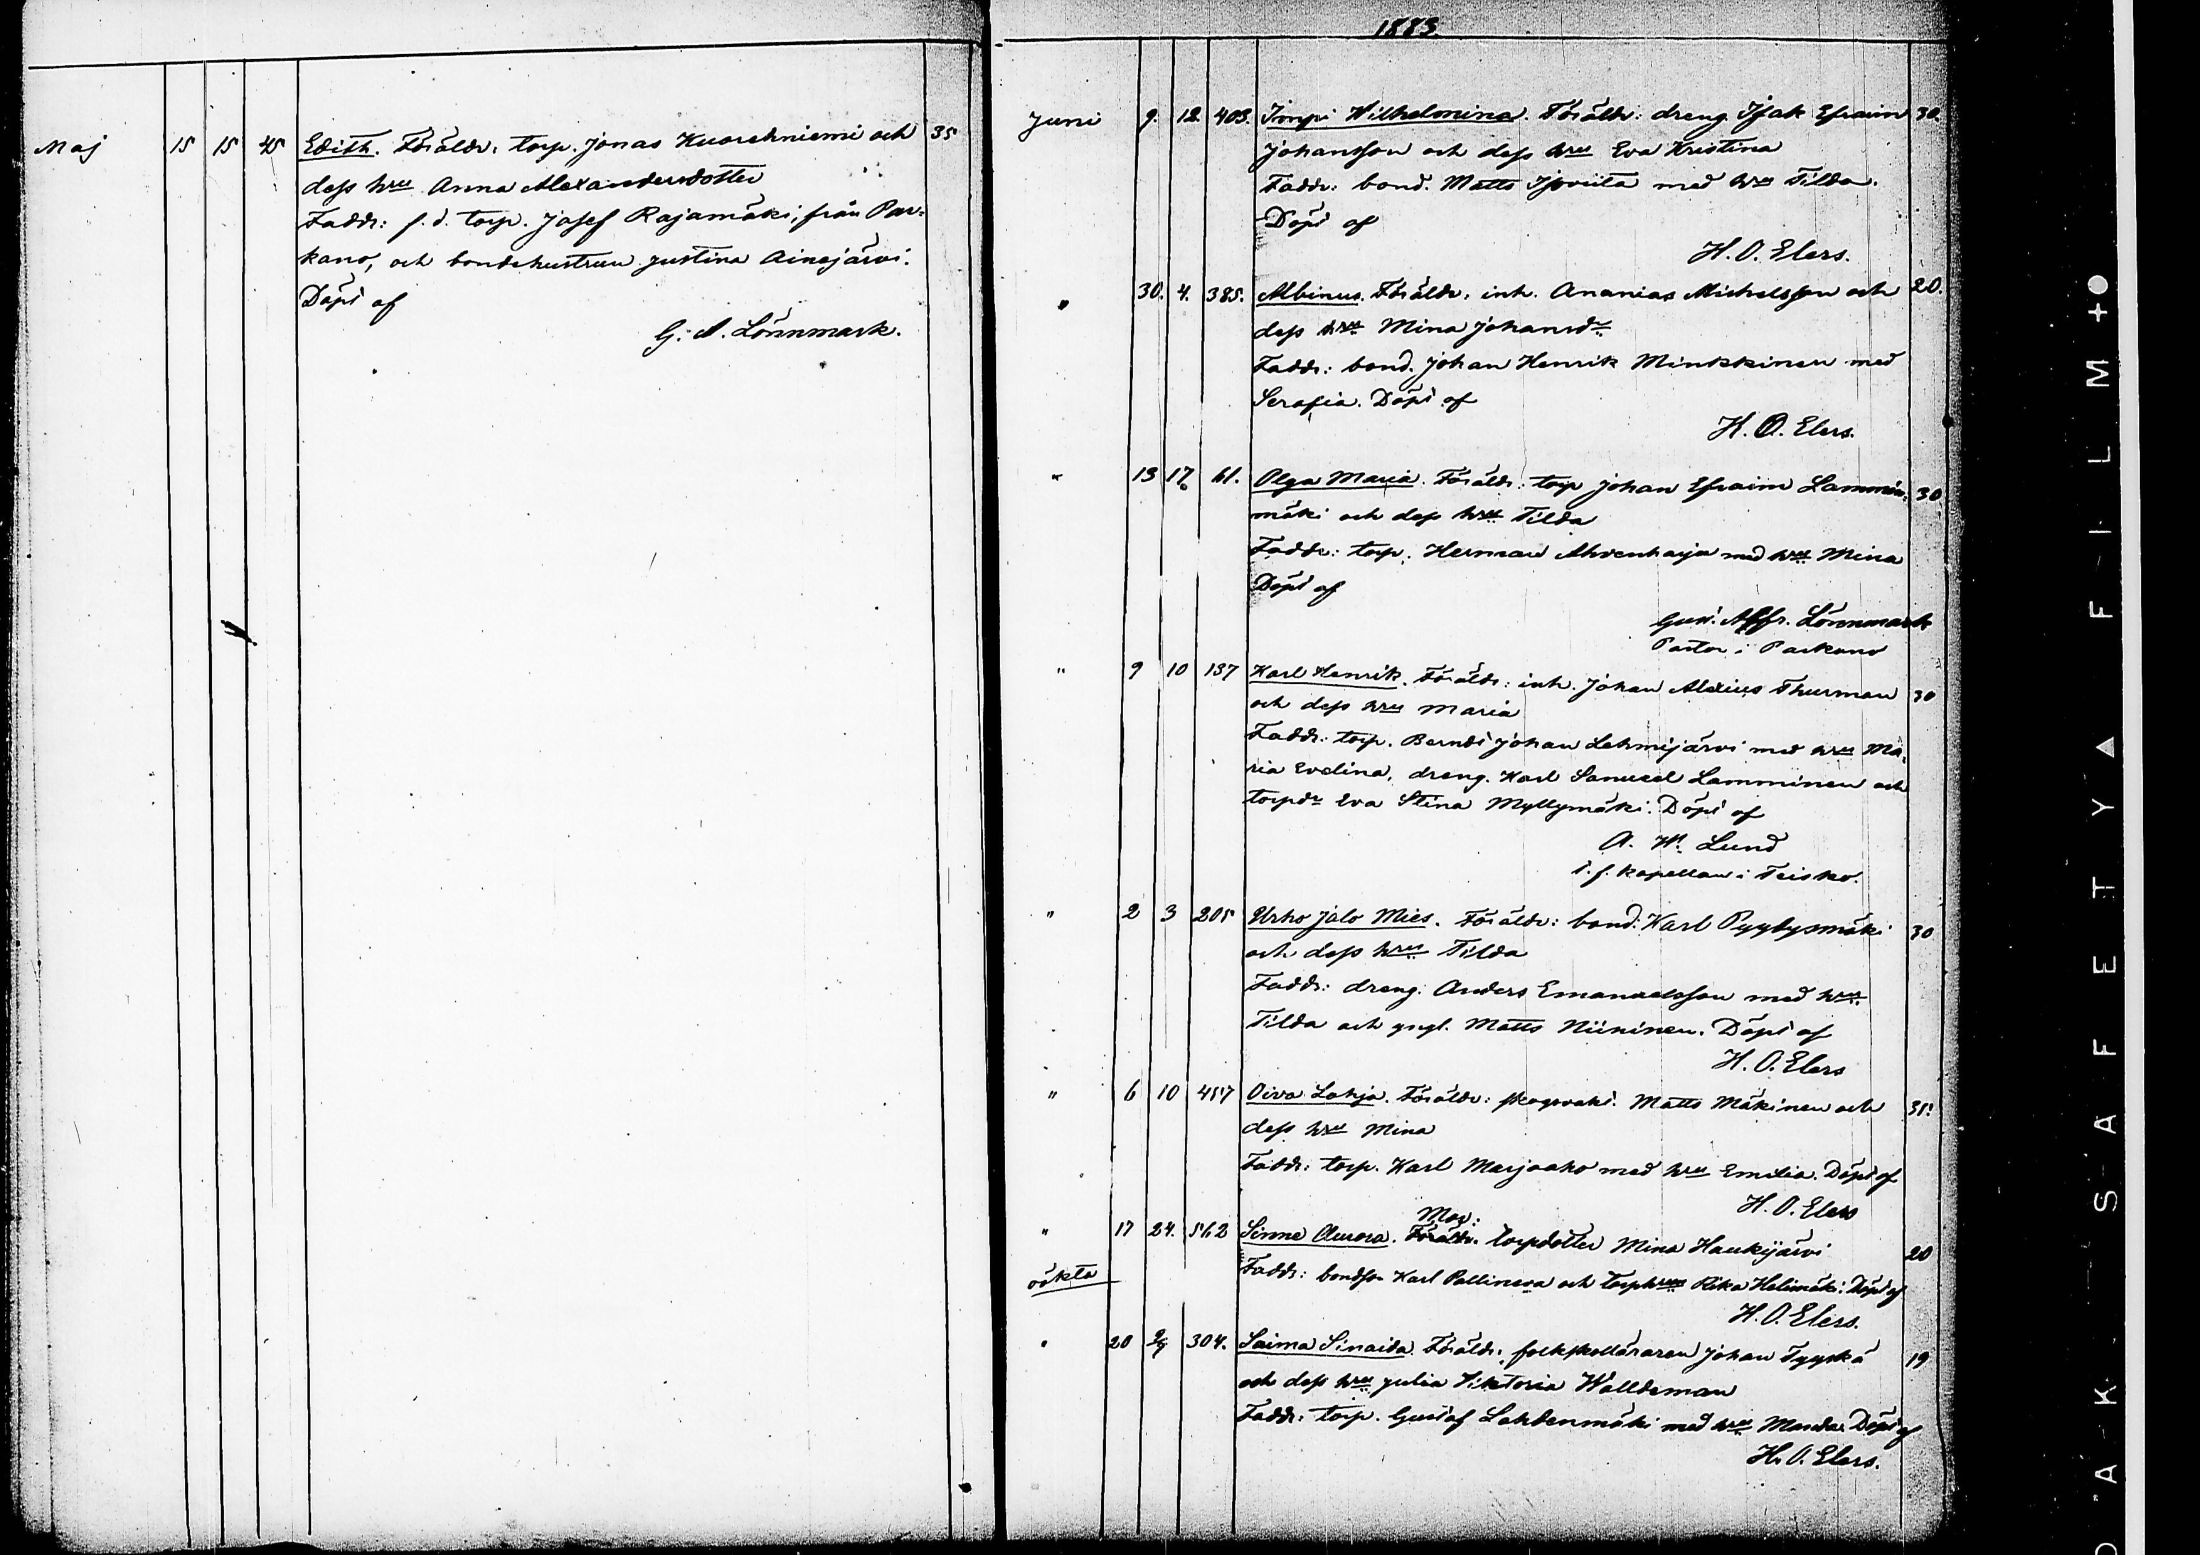 Maj 15 15 45 Edith. Föräldr: torp. Jonas Kuorehniemi och 35
dess hru Anna Alexandersdotter
Faddr: f. d. torp. Josef Rajamäki, från Par-
kano, och bondehustrun Justina Ainesjärvi.
Döpt af
G. A. Lönnmark.
1883
Juni 9. 12. 403. Impi Wilhelmina. Föräldr: dreng. Isak Efraim 30.
Johansson och dess hru Eva Kristina
Faddr: bond. Matts med hru Tilda.
Döpt af
H. O. Elers.
" 30. 4. 385. Albinus. Föräldr: inh. Ananias Michelsson och 20.
dess hru Mina Johansdr
Faddr: bond. Johan Henrik Minkkinen med
Serafia. Döpt af
H. O. Elers.
" 13 17 61. Olga Maria. Föräldr: torp Johan Efraim Lammin- 30
mäki och dess hru Tilda
Faddr: torp. Herman Ahvenharju med hru Mina
Döpt af
Gust. Alfr. Lönnmark
Pastor i Parkano
" 9 10 137 Karl Henrik. Föräldr: inh. Johan Alexius Thurman 30
och dess hru Maria
Faddr: torp. Berndt Johan Lehmijärvi med hru Ma-
ria Evelina, dreng. Karl Samuel Lamminen och
torpdr Eva Stina Myllymäki. Döpt af
A. W. Lund
t. f. kapellan i Teisko.
" 2 3 205 Urho Jalo Mies. Föräldr: bond. Karl Pyykysmäki 30
och dess hru Tilda
Faddr: dreng. Anders Emanuelsson med hru
Tilda och yngl. Matts Niininen. Döpt af
H. O. Elers
" 6 10 457 Oiva Lahja. Föräldr: skogvakt. Matts Mäkinen och 31.
dess hru Mina
Faddr: torp. Karl Marjaaho med hru Emilia. Döpt af
H. O. Elers
Mor:
" 17 24. 562 Sinne Aurora. Föräldr. torpdotter Mina Haukijärvi 20
oäkta Faddr: bondson Karl Pallinen och torphru Rika Helimäki. Döpt af
H. O. Elers.
" 20 2/7 304. Saima Sinaida. Föräldr: folkskolläraren Johan Tyyskä 19
och dess hru Julia Viktoria Walldeman
Faddr: torp. Gustaf Lehdenmäki med hru Manda. Döpt af
H. O. Elers.
DAK SAFETY ▲ FILM +●